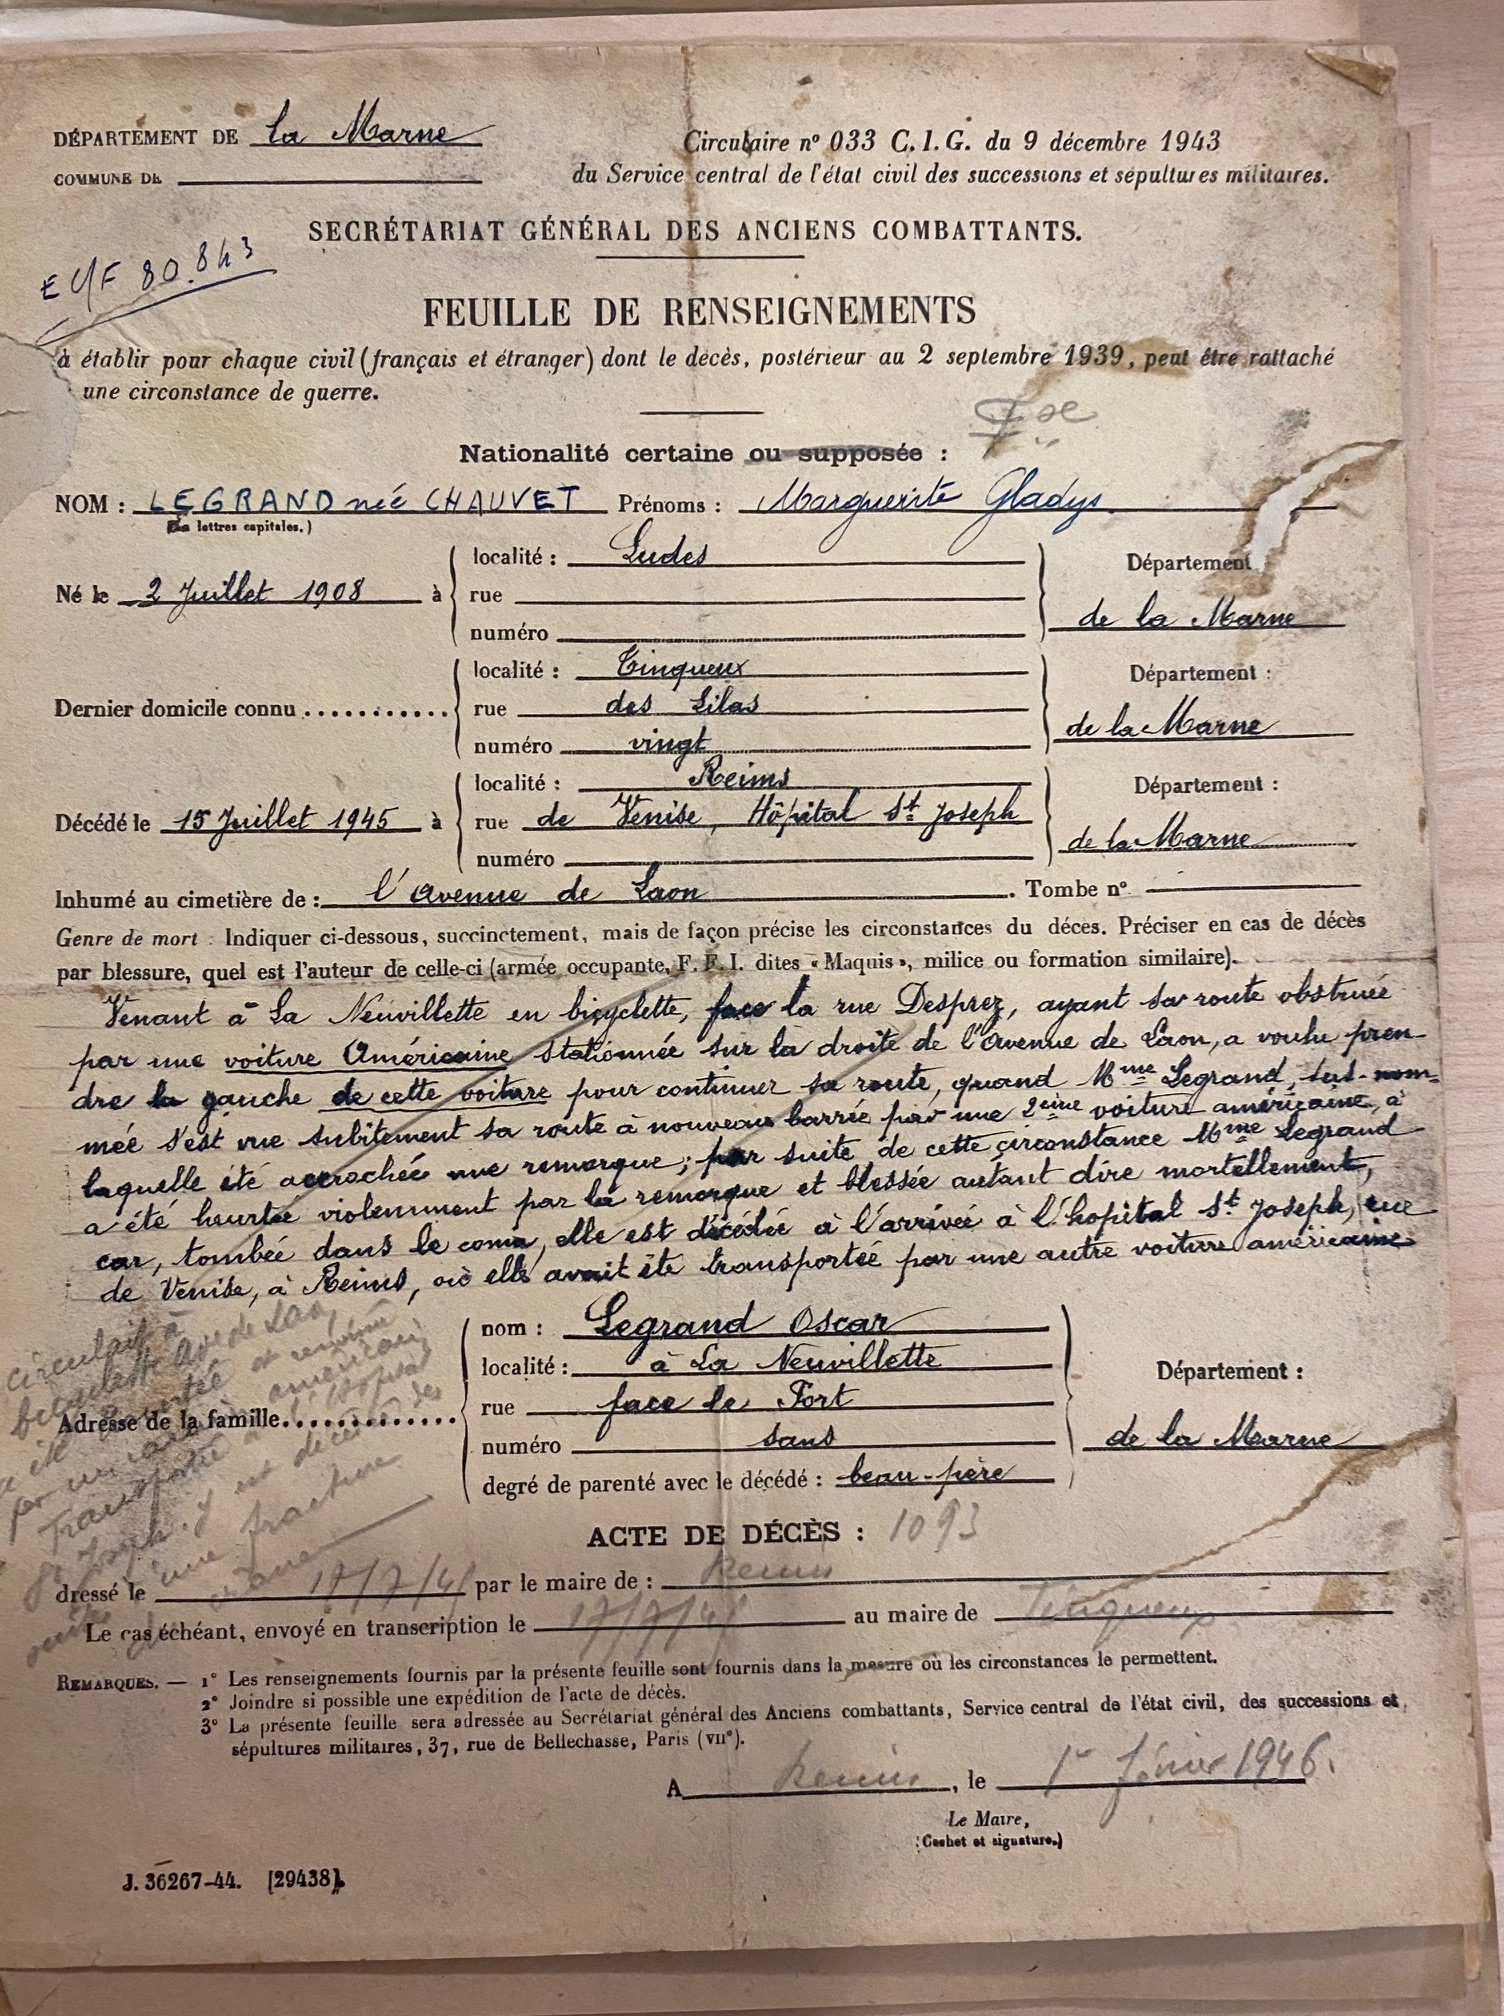 DÉPARTEMENT DE la Marne
COMMUNE DE
Circulaire nº 033 C.I.G. du 9 décembre 1943
du Service central de l'état civil des successions et sépultures militaires.
SECRÉTARIAT GÉNÉRAL DES ANCIENS COMBATTANTS.
80.843
FEUILLE DE RENSEIGNEMENTS
à établir pour chaque civil (français et étranger) dont le décès, postérieur au 2 septembre 1939, peut être rattaché
une circonstance de guerre.
Nationalité certaine ou supposée : Fse
NOM : LEGRAND née CHAUVET Prénoms : Marguerite Gladys.
(En lettres capitales.)
localité : Ludes Département
Né le 2 Juillet 1908 à rue
numéro de la Marne
localité : Tinqueux Département :
Dernier domicile connu ........... rue des Lilas
numéro vingt de la Marne
localité : Reims Département :
Décédé le 15 Juillet 1945 à rue de Venise, Hôpital St Joseph
numéro de la Marne
Inhumé au cimetière de : l'Avenue de Laon . Tombe nº
Genre de mort : Indiquer ci-dessous, succinctement, mais de façon précise les circonstances du décès. Préciser en cas de décès
par blessure, quel est l'auteur de celle-ci (armée occupante, F. F. I. dites « Maquis », milice ou formation similaire).
Venant à La Neuvillette en bicyclette, face la rue Desprez, ayant sa route obstruée
par une voiture Américaine stationnée sur la droite de l'Avenue de Laon, a voulu pren-
dre la gauche de cette voiture pour continuer sa route, quand Mme Legrand, sus-nom-
mée s'est vue subitement sa route à nouveau barrée par une 2ème voiture américaine, à
laquelle été accrochée une remorque ; par suite de cette circonstance Mme Legrand
a été heurtée violemment par la remorque et blessée autant dire mortellement,
car, tombée dans le coma, elle est décédée à l'arrivée à l'hopital St Joseph, rue
de Venise, à Reims, où elle avait été transportée par une autre voiture américaine
circulait à
bicyclette Ave de Laon,
a été heurtée et renversée
par un camion américain
Transportée à l'Hôpital
St Joseph. y est décédée des
suites d'une fracture
du crâne
nom : Legrand Oscar
localité : à La Neuvillette Département :
Adresse de la famille............. rue face le Fort
numéro sans de la Marne
degré de parenté avec le décédé : beau-père
ACTE DE DÉCÈS : 1093
dressé le 17/7/45 par le maire de : Reims
Le cas échéant, envoyé en transcription le 17/7/45 au maire de Tinqueux
REMARQUES. — 1º Les renseignements fournis par la présente feuille sont fournis dans la mesure où les circonstances le permettent.
2º Joindre si possible une expédition de l'acte de décès.
3º La présente feuille sera adressée au Secrétariat général des Anciens combattants, Service central de l'état civil, des successions et
sépultures militaires, 37, rue de Bellechasse, Paris (VIIe).
A Reims, le 1er février 1946.
Le Maire,
(Cachet et signature.)
J. 36267-44. [29438].